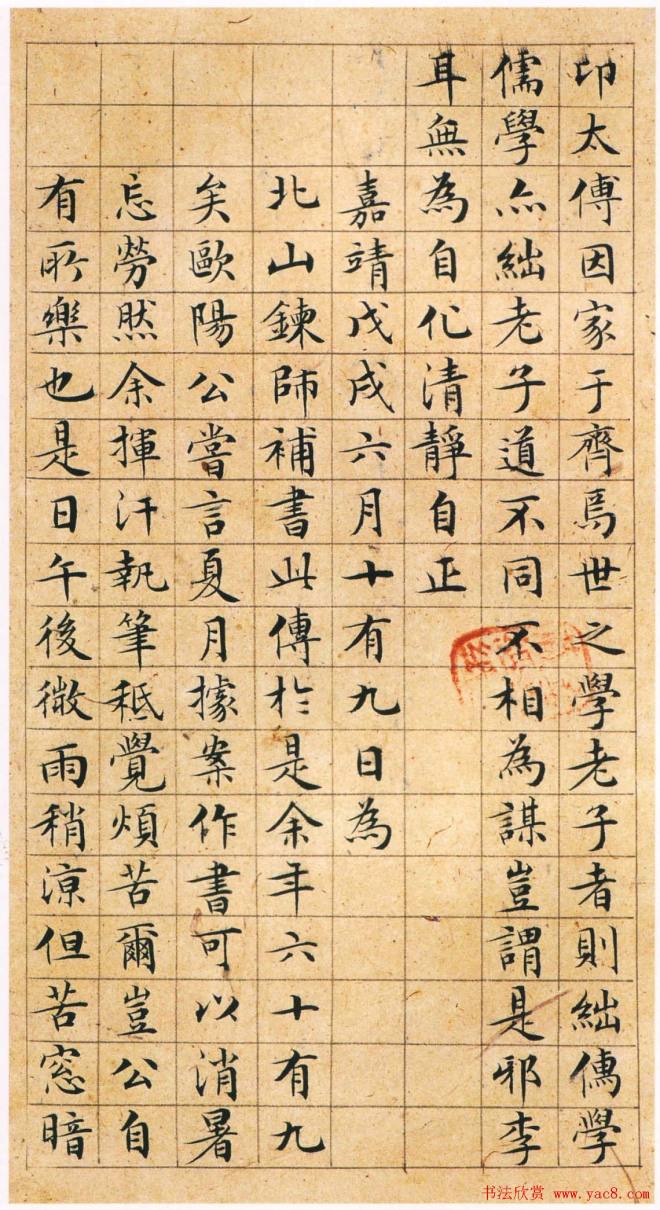 卬太傅因家于齊焉世之學老子者則絀儒學
儒學亦絀老子道不同不相為謀豈謂是邪李
耳無為自化清靜自正
嘉靖戊戌六月十有九日為
北山鍊師補書此傳於是余年六十有九
矣歐陽公嘗言夏月據案作書可以消暑
忘勞然余揮汗執筆秪覺煩苦爾豈公自
有所樂也是日午後微雨稍涼但苦窓暗
书法欣赏 www.yac8.com